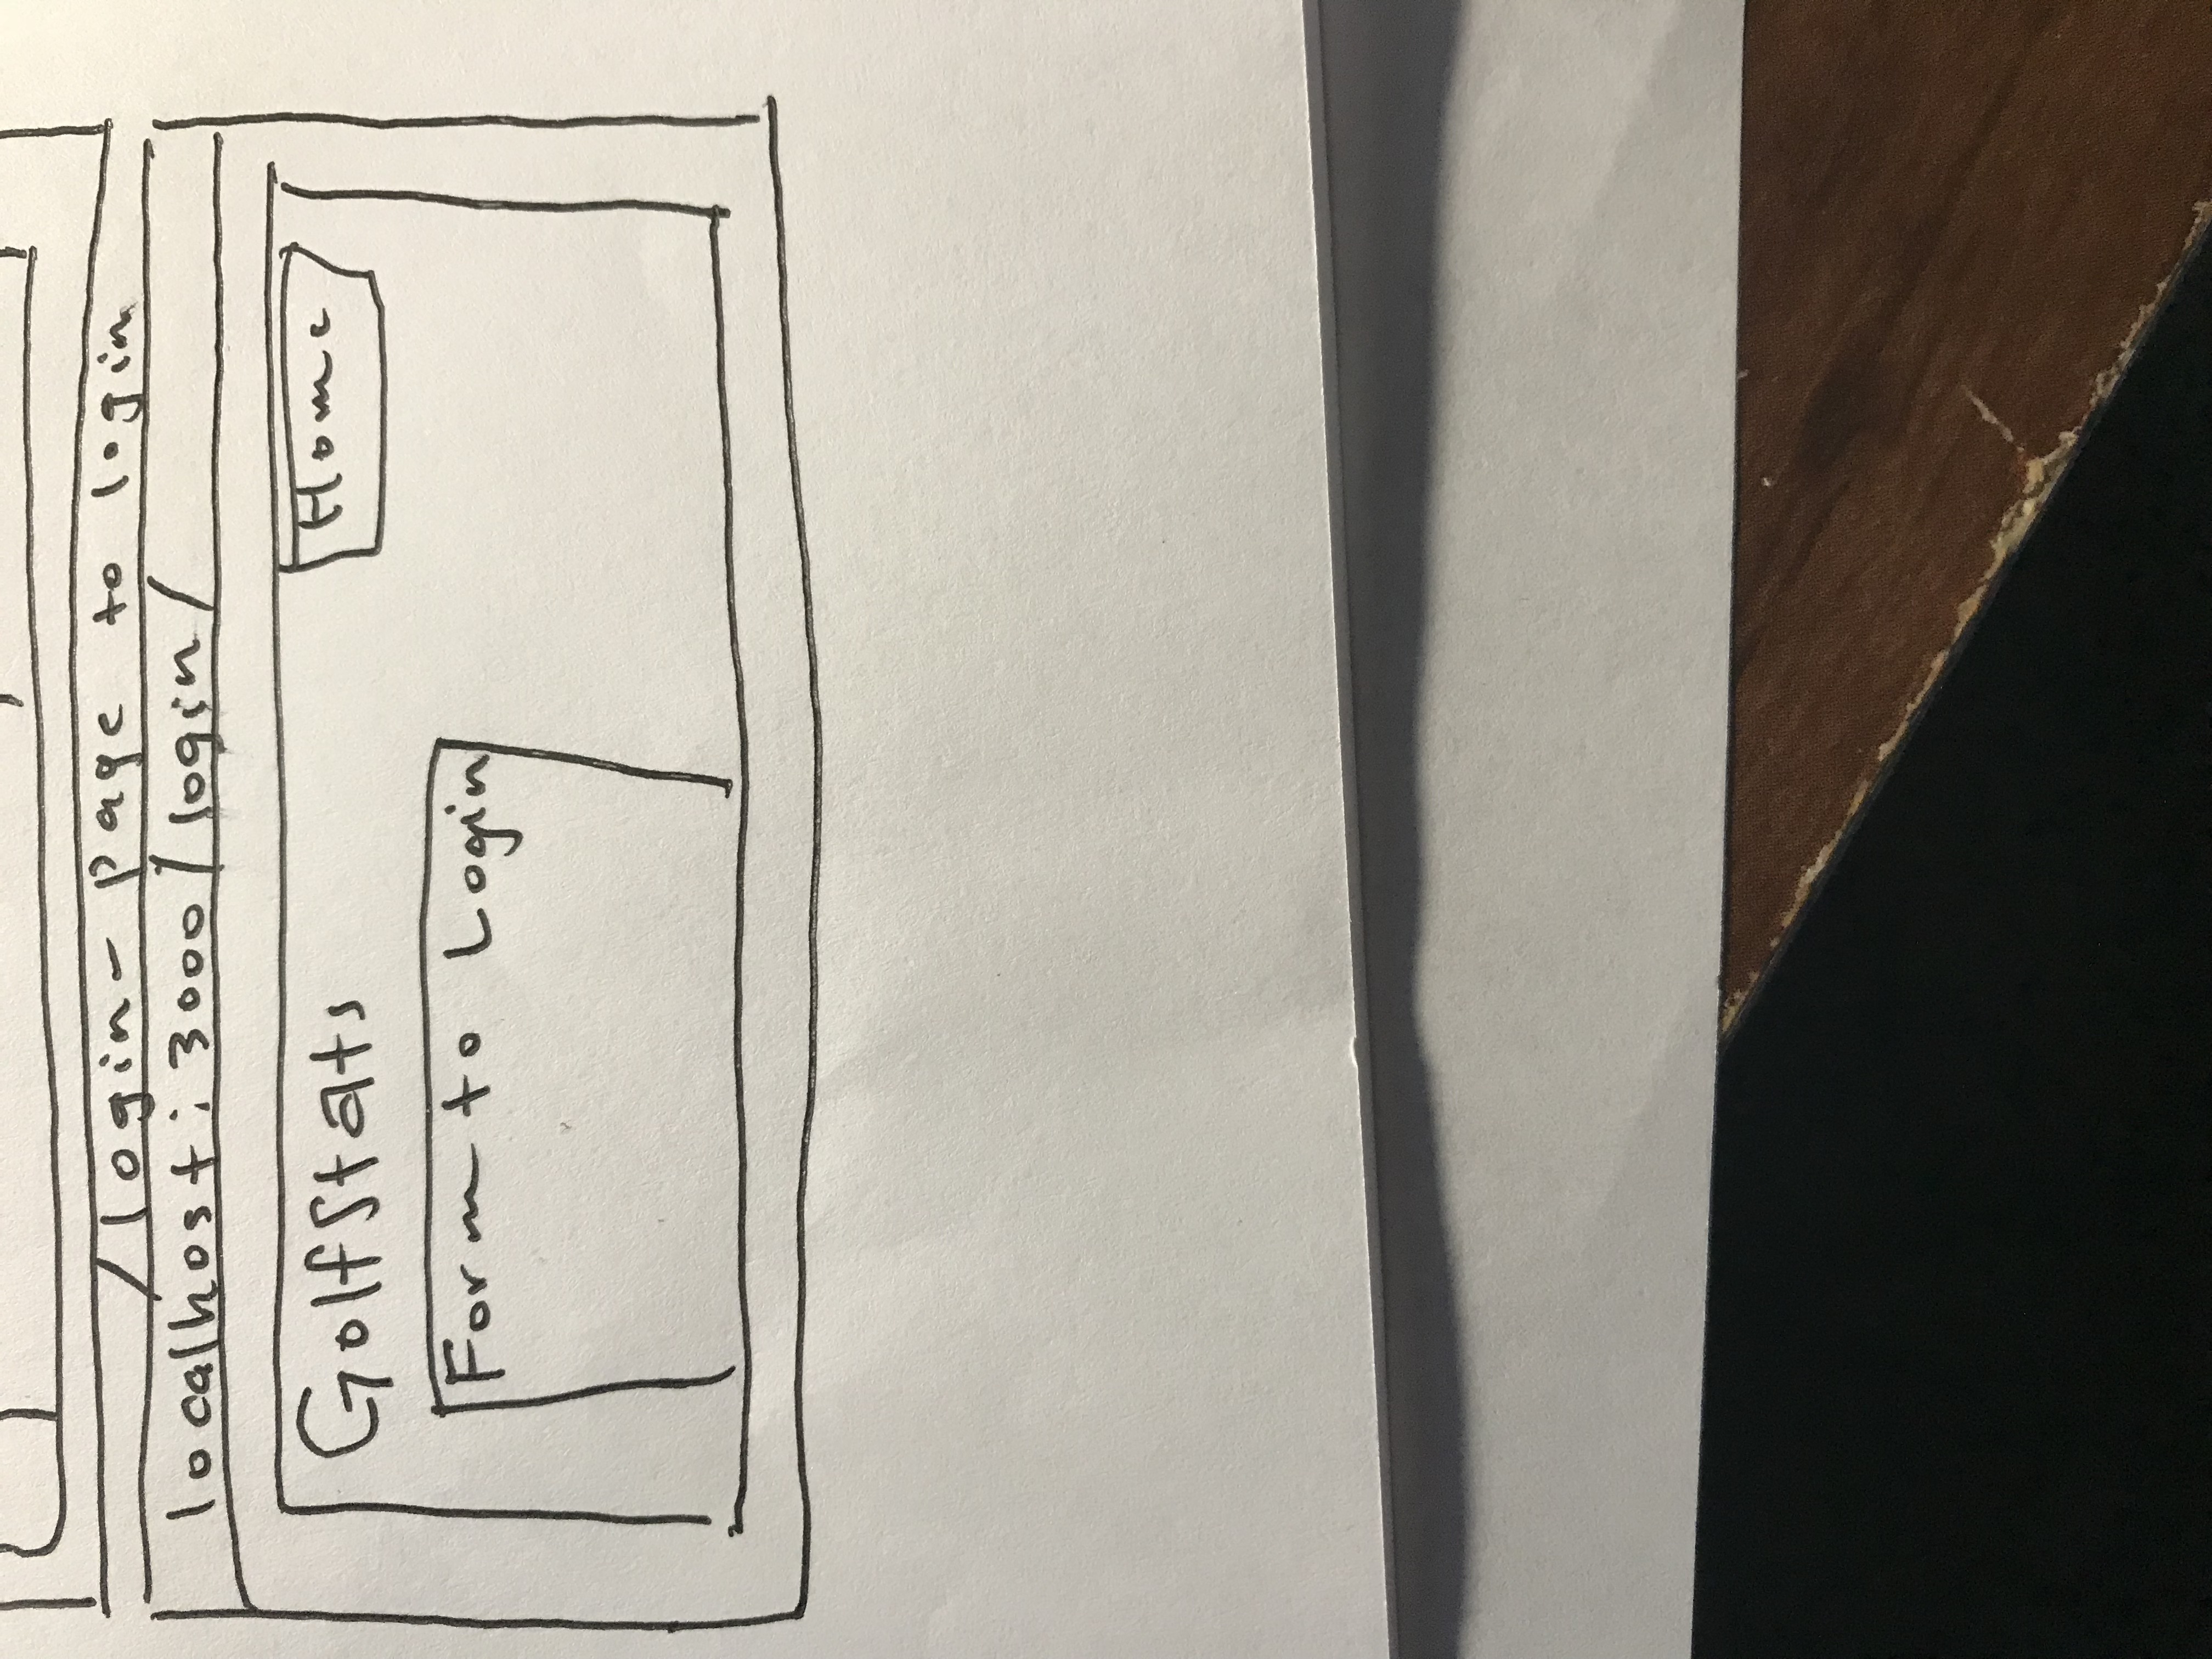 /login- page to login
localhost:3000/login/
GolfStats
Home
Form to Login